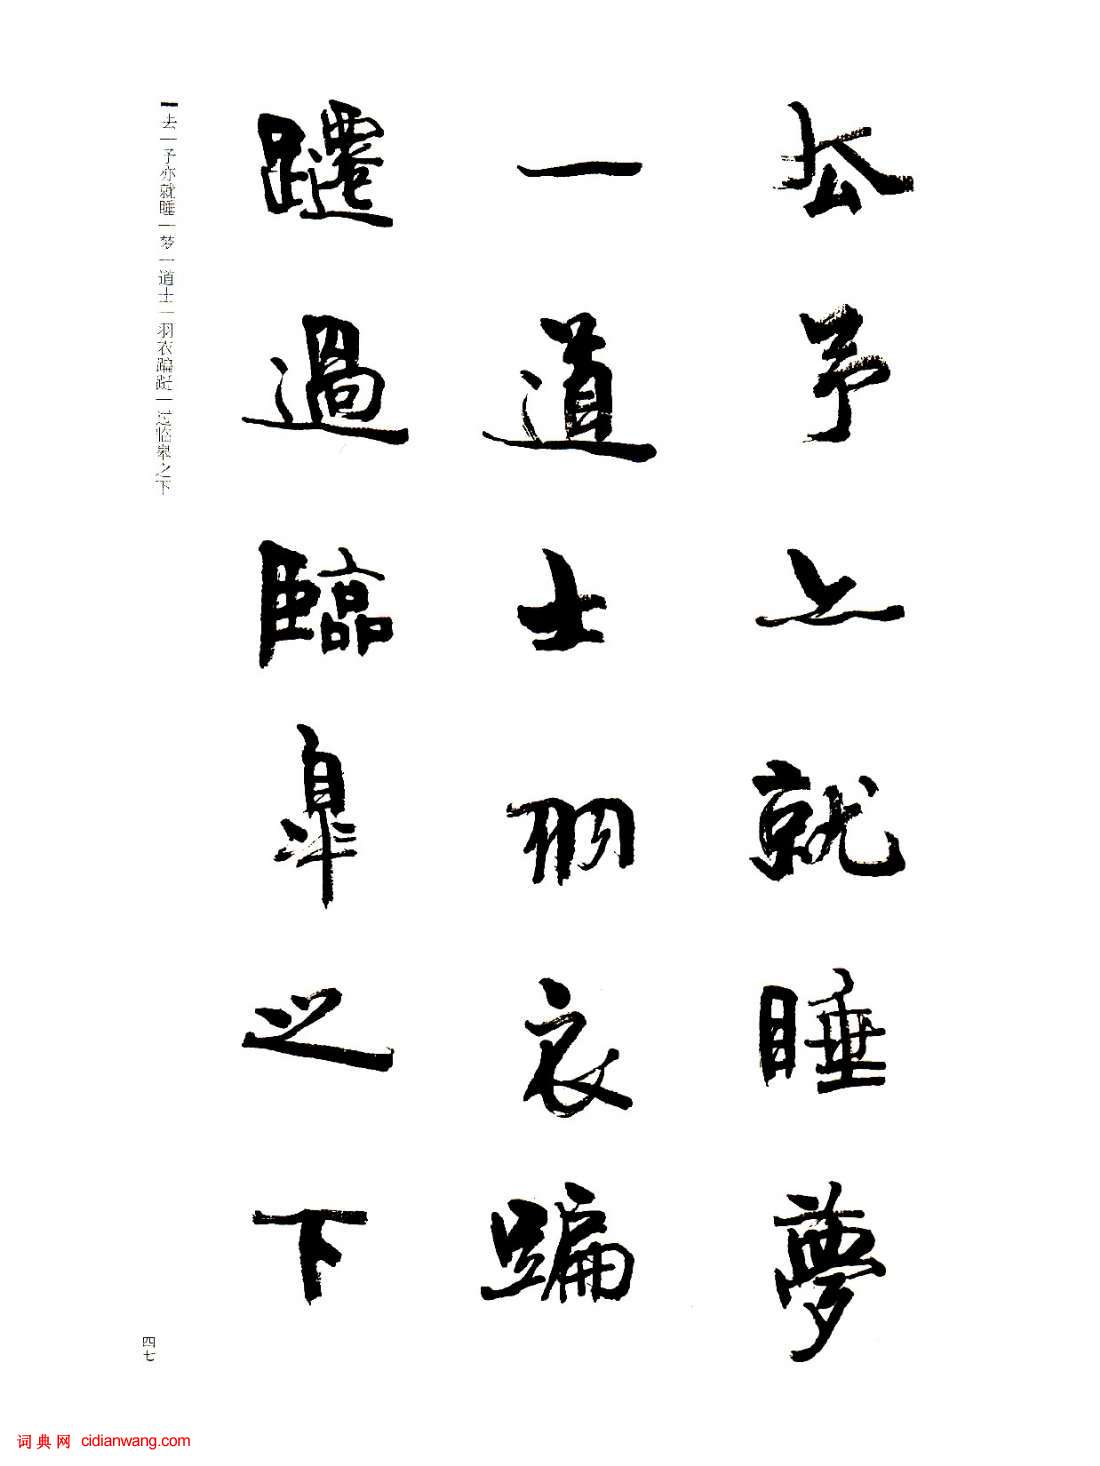 去予亦就睡夢
一道士羽衣蹁
躚過臨皋之下
去—予亦就睡—梦一道士—羽衣蹁跹—过临皋之下
四七
词典网 cidianwang.com